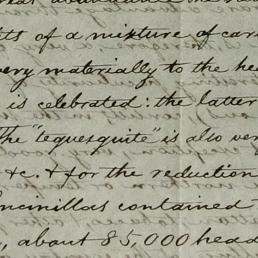 its of a mixture of car
very materially to the hea
is celebrated: the latter
The "tequesquite" is also ver
&c. & for the reduction
ncinillas contained
, about 85,000 head